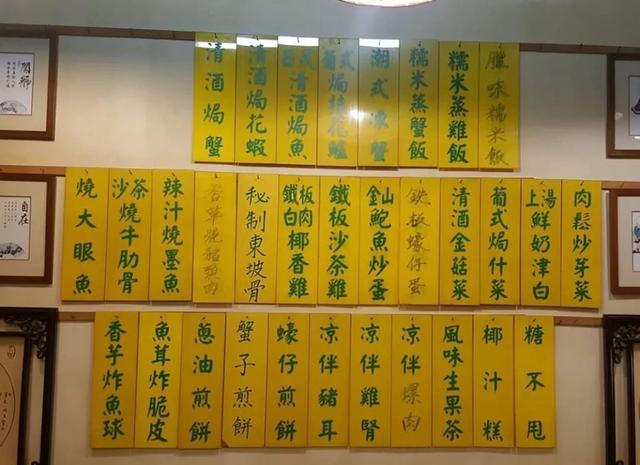 閒師
清酒焗蟹
清酒焗花蝦
日式清酒焗魚
葡式焗桂花鱸
潮式凍蟹
糯米蒸蟹飯
糯米蒸雞飯
臘味糯米飯
自在
燒大眼魚
沙茶燒牛肋骨
辣汁燒墨魚
香草燒豬頸肉
秘制東坡骨
鐵板白肉椰香雞
鐵板沙茶雞
金山鮑魚炒蛋
鉄板蠔仔蛋
清酒金菇菜
葡式焗什菜
上湯鮮奶津白
肉鬆炒芽菜
香芋炸魚球
魚茸炸脆皮
蔥油煎餅
蟹子煎餅
蠔仔煎餅
凉伴豬耳
凉伴雞腎
凉伴螺肉
風味生果茶
椰汁糕
糖不甩